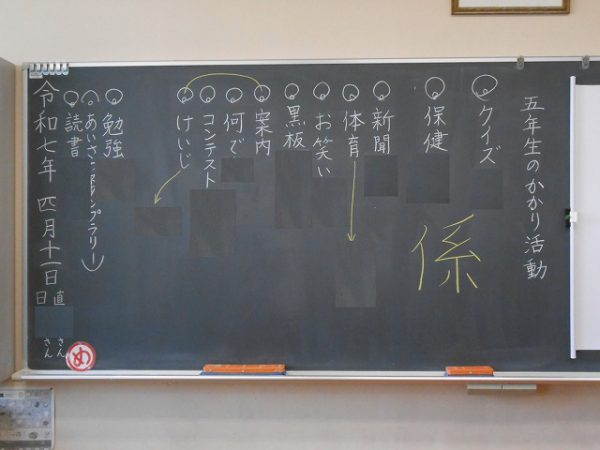 五年生のかかり活動
クイズ
係
保健
新聞
体育
お笑い
黒板
案内
何で
コンテスト
けいじ
勉強
読書
令和七年 四月十一日
日直
さん
さん
め